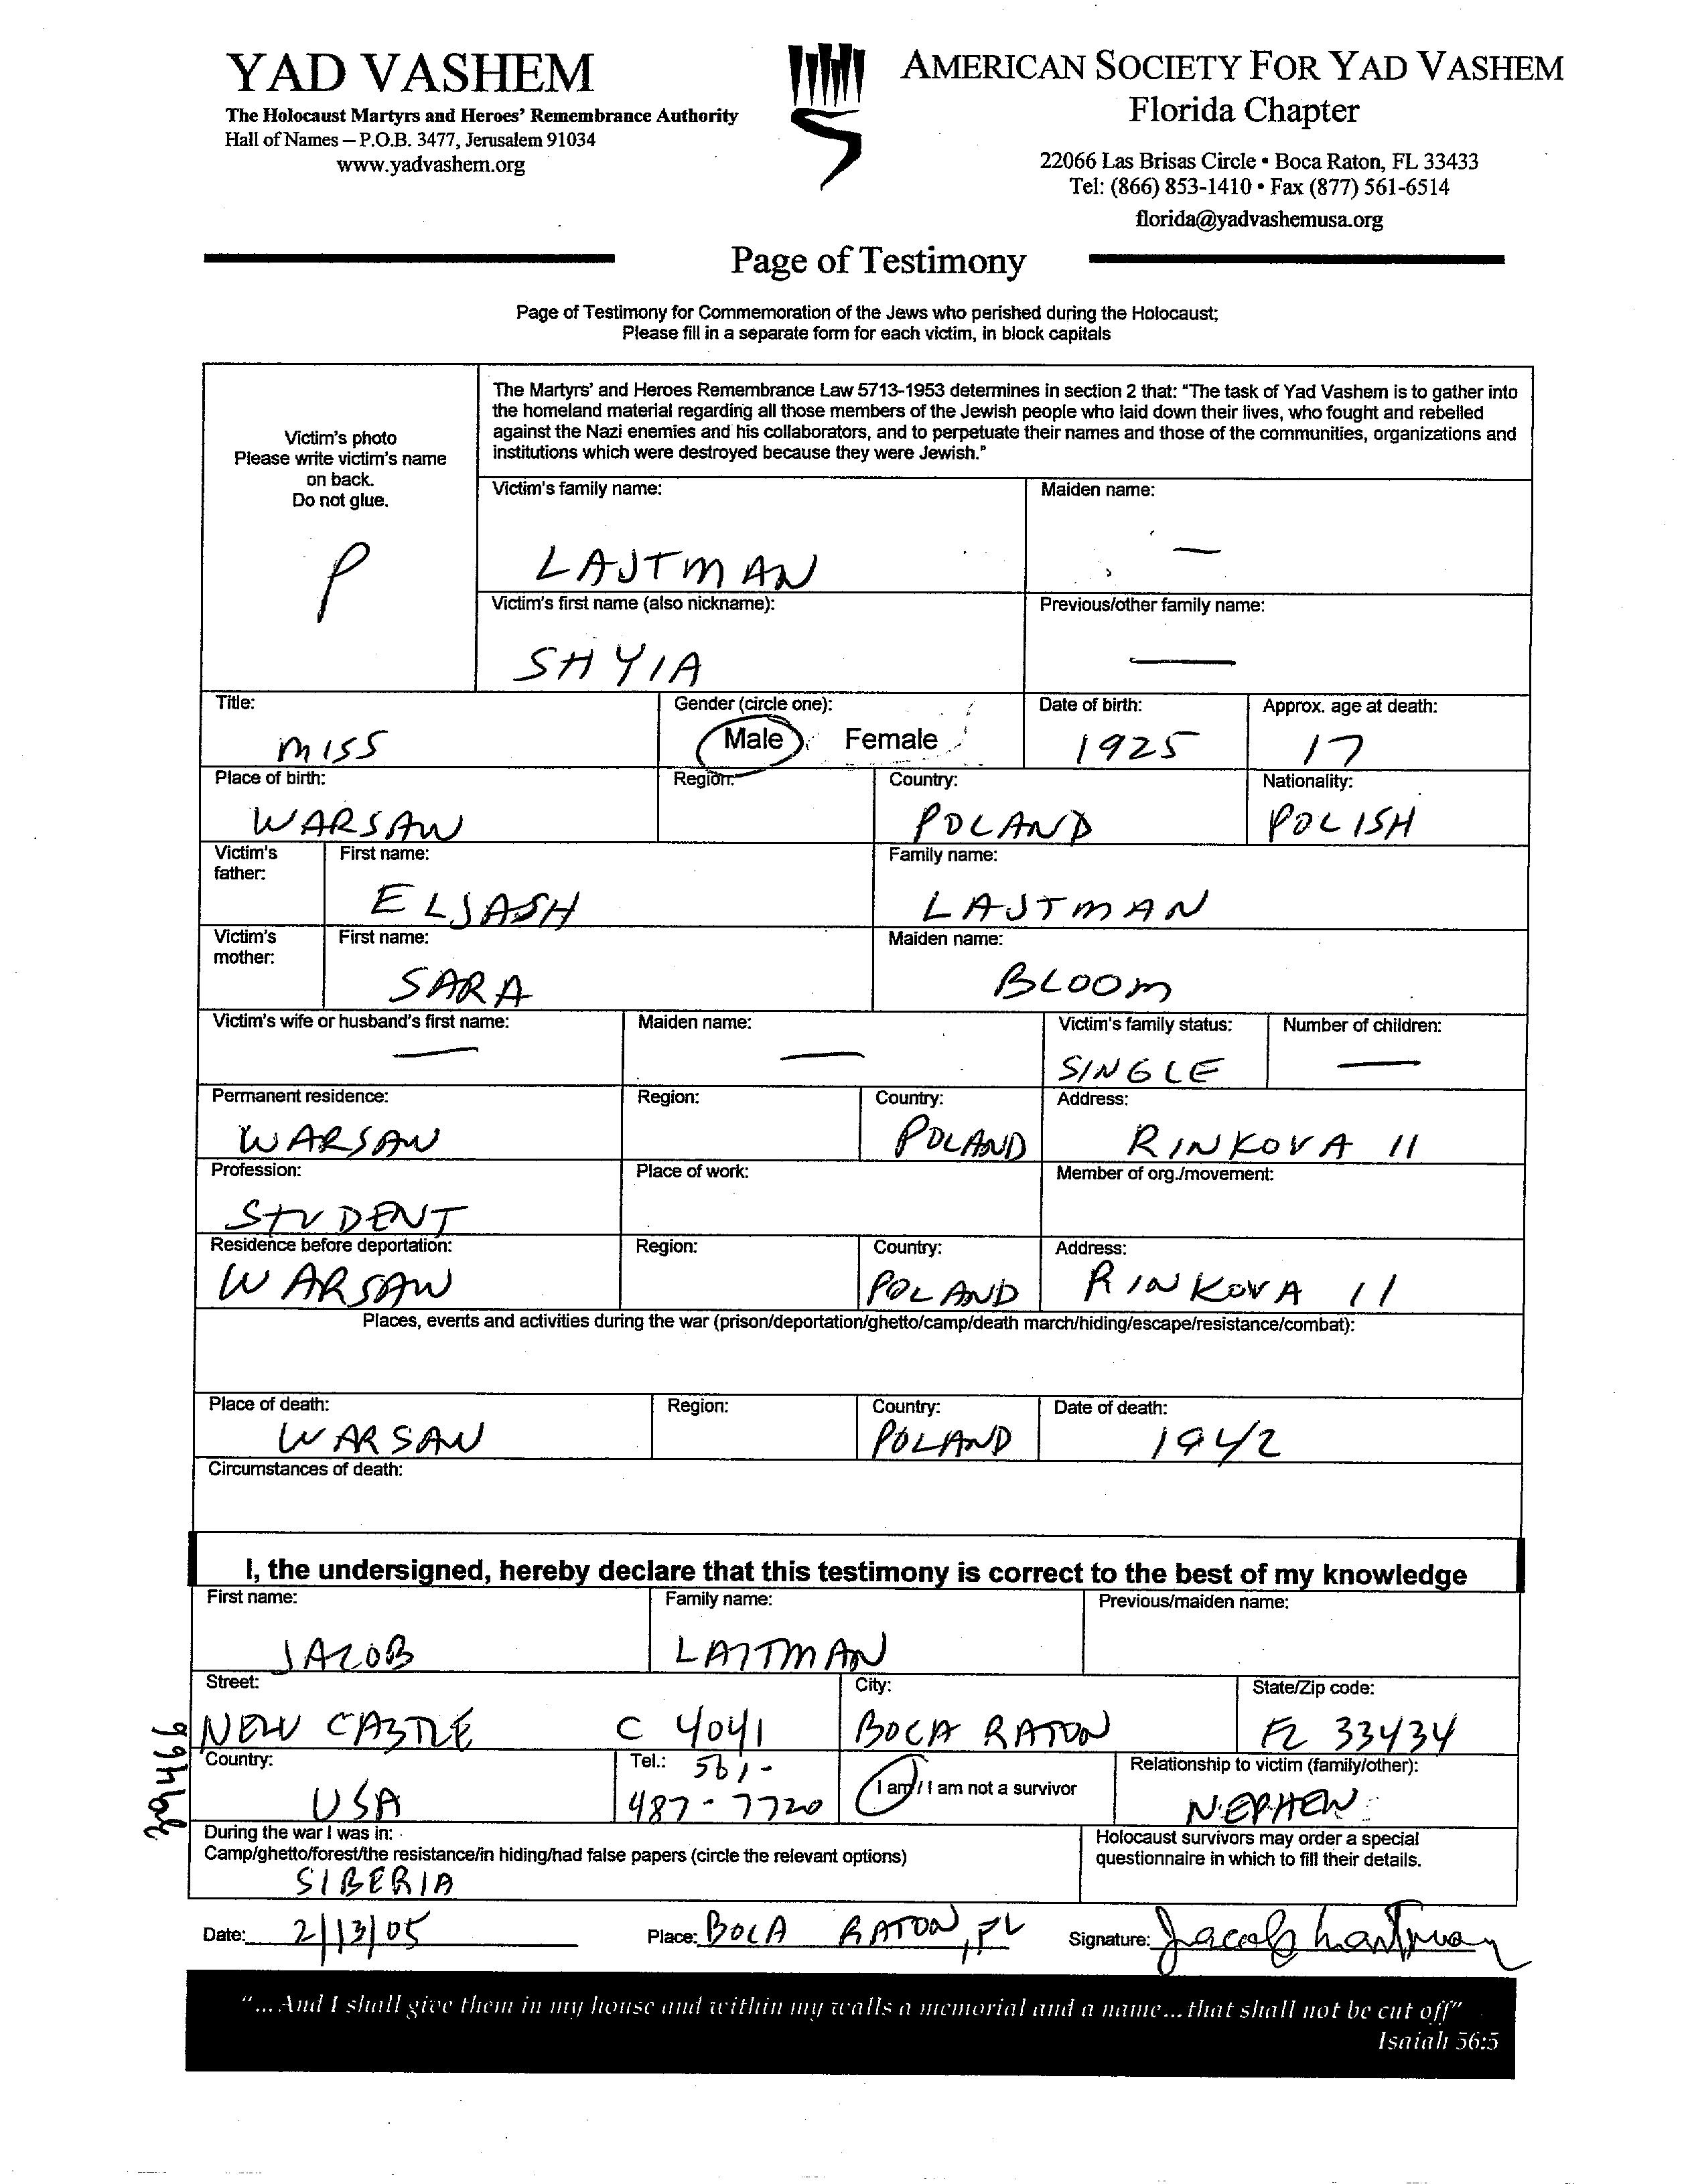 YAD VASHEM
The Holocaust Martyrs and Heroes' Remembrance Authority
Hall of Names – P.O.B. 3477, Jerusalem 91034
www.yadvashem.org
AMERICAN SOCIETY FOR YAD VASHEM
Florida Chapter
22066 Las Brisas Circle • Boca Raton, FL 33433
Tel: (866) 853-1410 • Fax (877) 561-6514
florida@yadvashemusa.org
Page of Testimony
Page of Testimony for Commemoration of the Jews who perished during the Holocaust;
Please fill in a separate form for each victim, in block capitals
Victim's photo
Please write victim's name
on back.
Do not glue.
P
The Martyrs' and Heroes Remembrance Law 5713-1953 determines in section 2 that: "The task of Yad Vashem is to gather into
the homeland material regarding all those members of the Jewish people who laid down their lives, who fought and rebelled
against the Nazi enemies and his collaborators, and to perpetuate their names and those of the communities, organizations and
institutions which were destroyed because they were Jewish."
Victim's family name: Maiden name:
LAJTMAN —
Victim's first name (also nickname): Previous/other family name:
SHYIA —
Title: Gender (circle one): Date of birth: Approx. age at death:
MISS Male Female 1925 17
Place of birth: Region: Country: Nationality:
WARSAW POLAND POLISH
Victim's father: First name: Family name:
ELJASH LAJTMAN
Victim's mother: First name: Maiden name:
SARA BLOOM
Victim's wife or husband's first name: Maiden name: Victim's family status: Number of children:
— — SINGLE —
Permanent residence: Region: Country: Address:
WARSAW POLAND RINKOVA 11
Profession: Place of work: Member of org./movement:
STUDENT
Residence before deportation: Region: Country: Address:
WARSAW POLAND RINKOVA 11
Places, events and activities during the war (prison/deportation/ghetto/camp/death march/hiding/escape/resistance/combat):
Place of death: Region: Country: Date of death:
WARSAW POLAND 1942
Circumstances of death:
I, the undersigned, hereby declare that this testimony is correct to the best of my knowledge
First name: Family name: Previous/maiden name:
JACOB LAITMAN
Street: City: State/Zip code:
NEW CASTLE C 4041 BOCA RATON FL 33434
Country: Tel.: I am / I am not a survivor Relationship to victim (family/other):
USA 561-
487-7720 NEPHEW
During the war I was in:
Camp/ghetto/forest/the resistance/in hiding/had false papers (circle the relevant options)
SIBERIA
Holocaust survivors may order a special
questionnaire in which to fill their details.
Date: 2/13/05 Place: BOCA RATON, FL Signature: Jacob Laitman
"...And I shall give them in my house and within my walls a memorial and a name...that shall not be cut off"
Isaiah 56:5